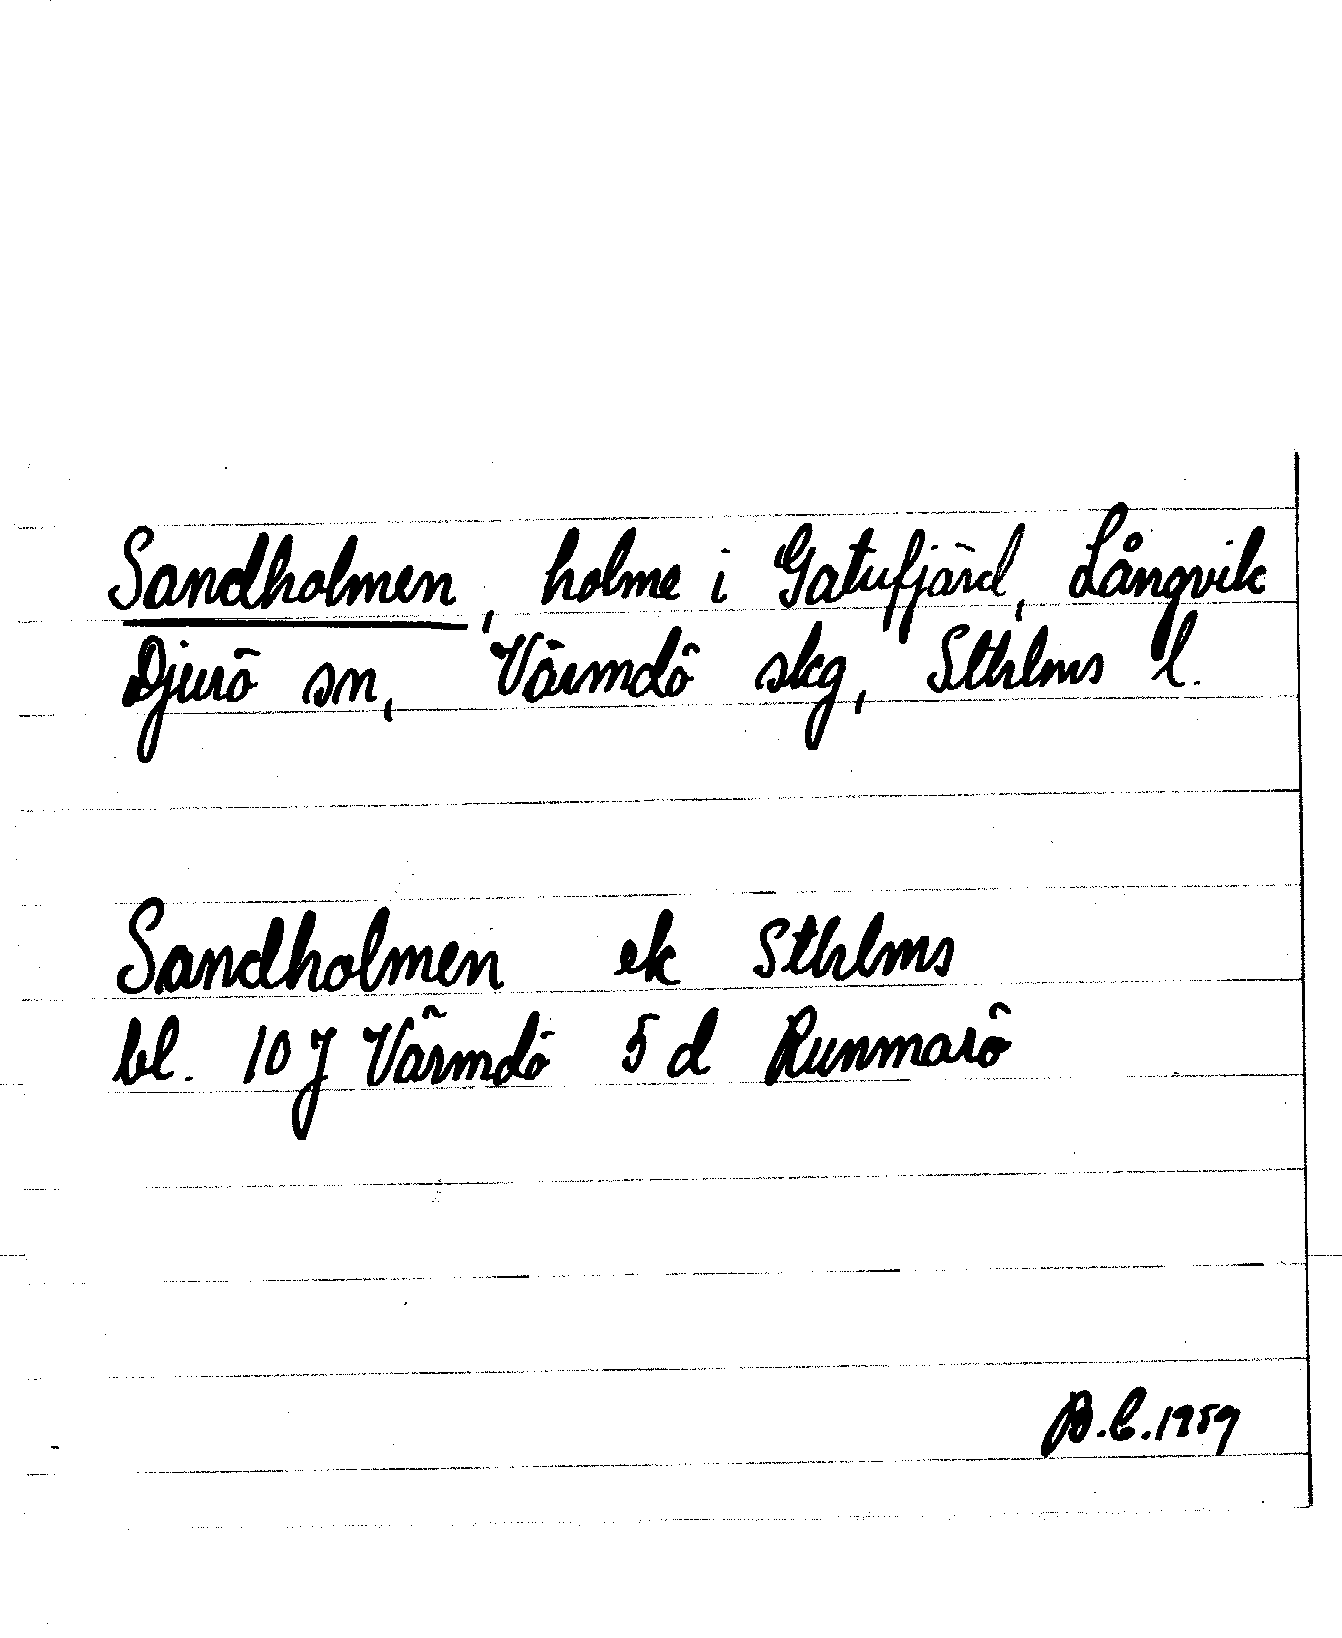 Sandholmen, holme i Gatufjärd, Långvik
Djurö sn, Värmdö skg, Sthlms l.
Sandholmen ek Sthlms
bl. 10 J Värmdö 5 d Runmarö
B.C. 1959